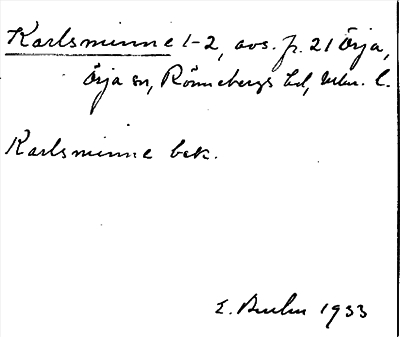 Karlsminne 1-2, avs. fr. 21 Örja,
Örja sn, Rönnebergs hd, Mlm. l.
Karlsminne bek.
E. 1933